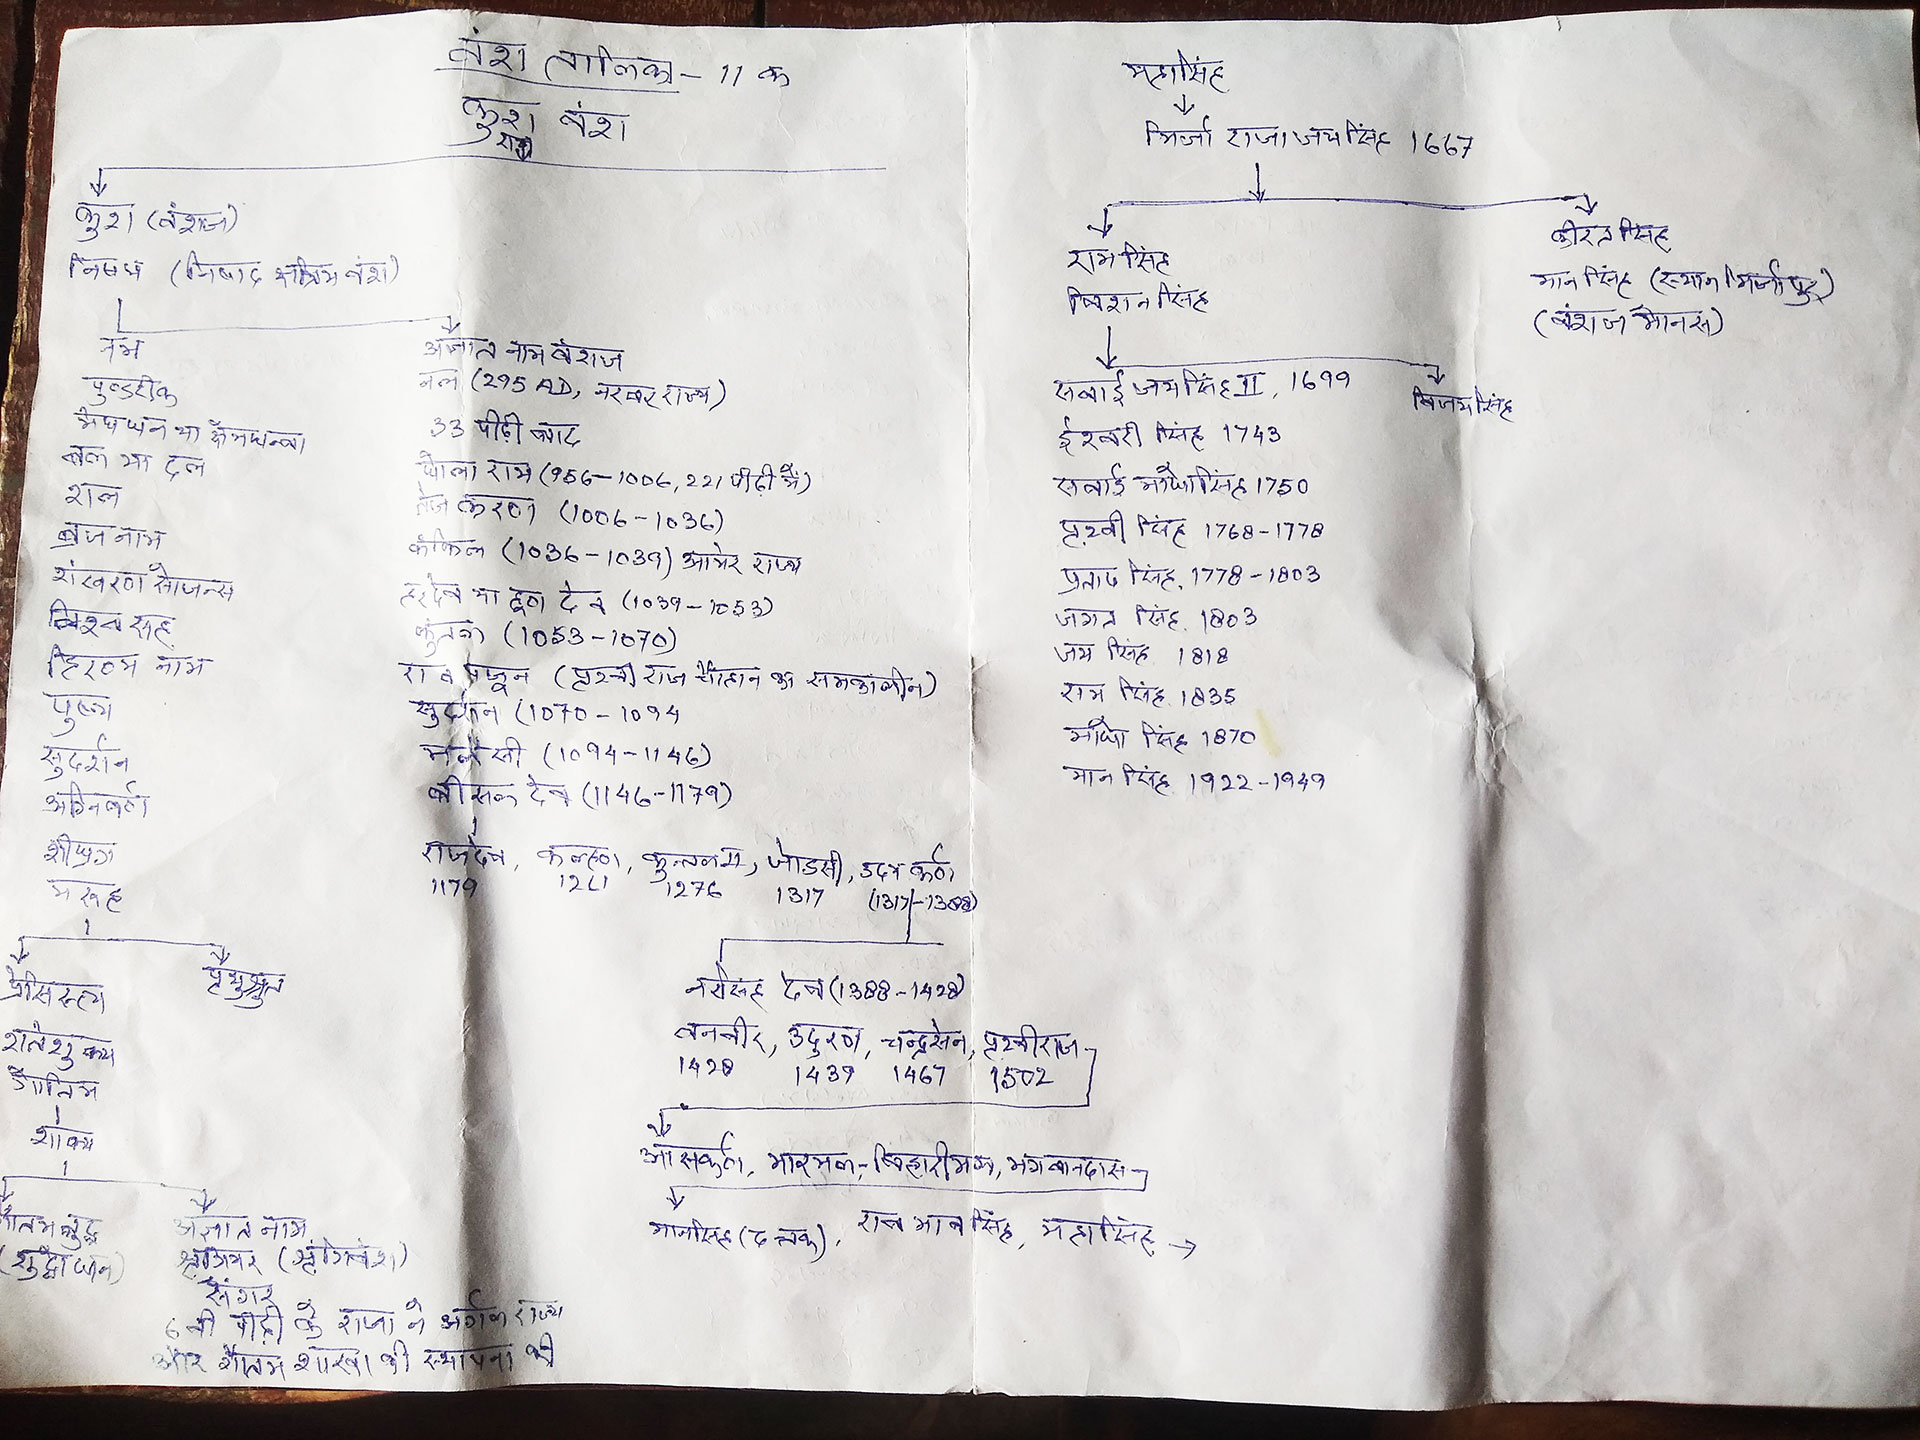 वंश तालिका - 11 क
कुश वंश
कुश (वंशज)
निषध (निषाद क्षत्रिय वंश)
नभ
पुण्डरीक
मेघधन या क्षेमधन्वा
बल या दल
शल
ब्रजनाभ
शंखरण
विश्व सह
हिरण्य नाभ
पुष्य
सुदर्शन
अग्निवर्ण
शीघ्रग
मरूह
शाक्य
गौतम बुद्ध
(शुद्धोधन)
अज्ञात नाम
श्रृंगीवर (श्रृंगिवंश)
सेंगर
6 वी पीढ़ी के राजा ने अर्गल राज्य
और गौतम शाखा की स्थापना की
अज्ञात नाम वंशज
नल (295 AD, नरवर राज्य)
33 पीढ़ी बाद
घोला राय (956-1006, 221 पीढ़ी में)
तेज करण (1006-1036)
कंकिल (1036-1039) आमेर राज्य
हरदेव या हूण देव (1039-1053)
कुंतल (1053-1070)
राव पजून (पृथ्वी राज चौहान का समकालीन)
सुदर्शन (1070-1094
मलेसी (1094-1146)
बीसल देव (1146-1179)
राजदेव, कल्हण, कुन्तल II, जोडसी, उदय कर्ण
1179 1261 1276 1317 (1317-1388)
नरसिंह देव (1388-1428)
वनवीर, उदुरण, चन्द्रसेन, पृथ्वीराज
1428 1439 1467 1502
आसकर्ण, भारमल - बिहारीमल, भगवानदास
मानसिंह (दत्तक), राव भाव सिंह, महासिंह →
महासिंह
मिर्जा राजा जय सिंह 1667
राम सिंह
विशन सिंह
कीरत सिंह
मान सिंह (स्थान मिर्जापुर)
(वंशज मौनस)
सवाई जय सिंह II, 1699
विजय सिंह
ईश्वरी सिंह 1743
सवाई माधो सिंह 1750
पृथ्वी सिंह 1768-1778
प्रताप सिंह, 1778-1803
जगत सिंह, 1803
जय सिंह 1818
राम सिंह 1835
माधो सिंह 1870
मान सिंह 1922-1949